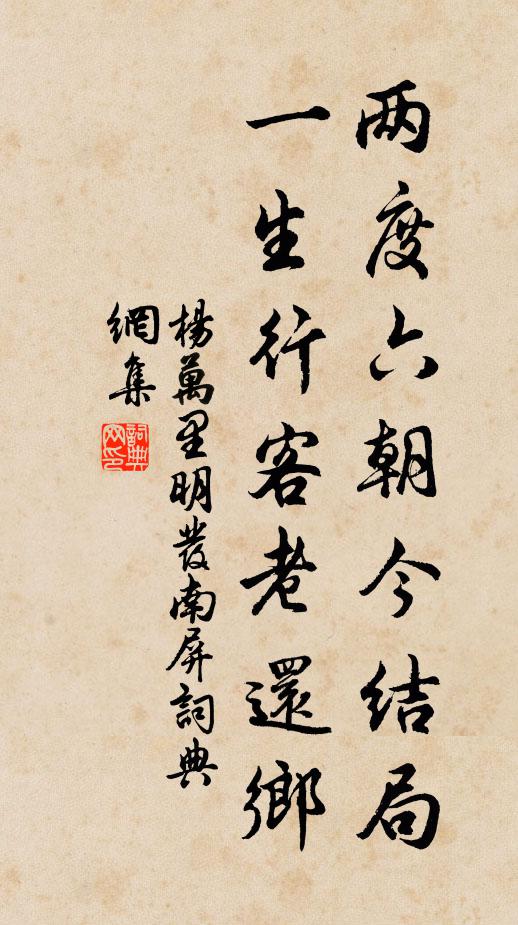 两度六朝今结局
一生行客老還鄉
楊萬里明發南屏詞典
網集
詞典
网印